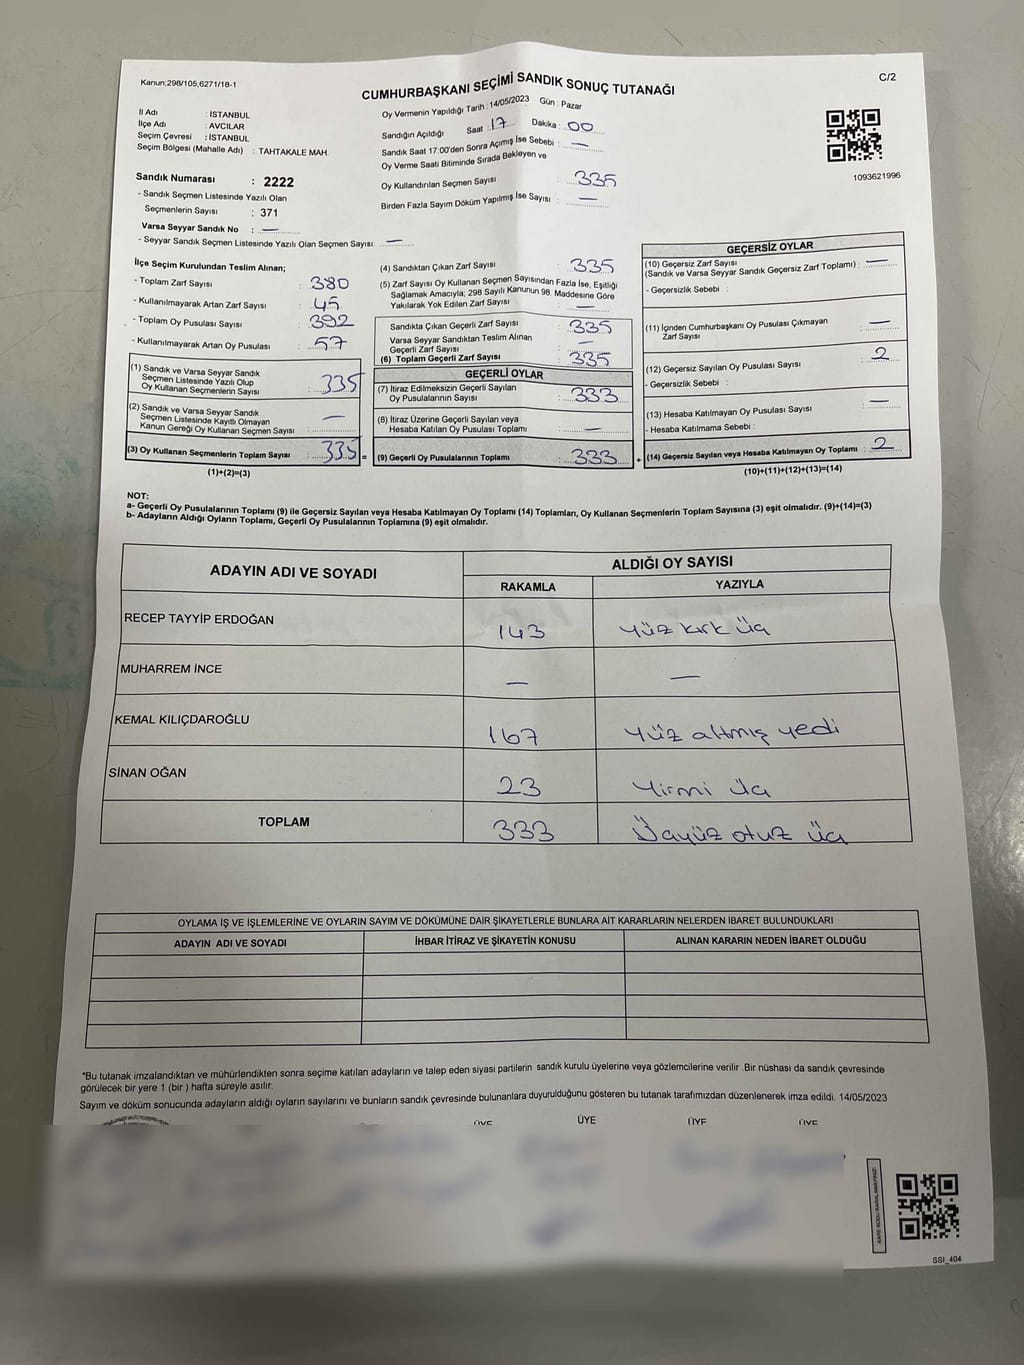 Kanun;298/105,6271/18-1
C/2
CUMHURBAŞKANI SEÇİMİ SANDIK SONUÇ TUTANAĞI
İl Adı : İSTANBUL
İlçe Adı : AVCILAR
Seçim Çevresi : İSTANBUL
Seçim Bölgesi (Mahalle Adı) : TAHTAKALE MAH.
Sandık Numarası : 2222
- Sandık Seçmen Listesinde Yazılı Olan
Seçmenlerin Sayısı : 371
Varsa Seyyar Sandık No : —
- Seyyar Sandık Seçmen Listesinde Yazılı Olan Seçmen Sayısı: —
Oy Vermenin Yapıldığı Tarih : 14/05/2023 Gün : Pazar
Sandığın Açıldığı Saat : 17 Dakika : 00
Sandık Saat 17:00'den Sonra Açmış İse Sebebi : —
Oy Verme Saati Bitiminde Sırada Bekleyen ve
Oy Kullandırılan Seçmen Sayısı : 335
Birden Fazla Sayım Döküm Yapılmış İse Sayısı : —
1093621996
İlçe Seçim Kurulundan Teslim Alınan;
- Toplam Zarf Sayısı : 380
- Kullanılmayarak Artan Zarf Sayısı : 45
- Toplam Oy Pusulası Sayısı : 392
- Kullanılmayarak Artan Oy Pusulası : 57
(1) Sandık ve Varsa Seyyar Sandık
Seçmen Listesinde Yazılı Olup
Oy Kullanan Seçmenlerin Sayısı : 335
(2) Sandık ve Varsa Seyyar Sandık
Seçmen Listesinde Kayıtlı Olmayan
Kanun Gereği Oy Kullanan Seçmen Sayısı : —
(3) Oy Kullanan Seçmenlerin Toplam Sayısı : 335 =
(1)+(2)=(3)
(4) Sandıktan Çıkan Zarf Sayısı : 335
(5) Zarf Sayısı Oy Kullanan Seçmen Sayısından Fazla İse, Eşitliği
Sağlamak Amacıyla; 298 Sayılı Kanunun 98. Maddesine Göre
Yakılarak Yok Edilen Zarf Sayısı : —
Sandıkta Çıkan Geçerli Zarf Sayısı : 335
Varsa Seyyar Sandıktan Teslim Alınan
Geçerli Zarf Sayısı : —
(6) Toplam Geçerli Zarf Sayısı : 335
GEÇERLİ OYLAR
(7) İtiraz Edilmeksizin Geçerli Sayılan
Oy Pusulalarının Sayısı : 333
(8) İtiraz Üzerine Geçerli Sayılan veya
Hesaba Katılan Oy Pusulası Toplamı : —
(9) Geçerli Oy Pusulalarının Toplamı : 333 +
GEÇERSİZ OYLAR
(10) Geçersiz Zarf Sayısı
(Sandık ve Varsa Seyyar Sandık Geçersiz Zarf Toplamı) : —
- Geçersizlik Sebebi :
(11) İçinden Cumhurbaşkanı Oy Pusulası Çıkmayan
Zarf Sayısı : —
(12) Geçersiz Sayılan Oy Pusulası Sayısı : 2
- Geçersizlik Sebebi :
(13) Hesaba Katılmayan Oy Pusulası Sayısı : —
- Hesaba Katılmama Sebebi :
(14) Geçersiz Sayılan veya Hesaba Katılmayan Oy Toplamı : 2
(10)+(11)+(12)+(13)=(14)
NOT:
a- Geçerli Oy Pusulalarının Toplamı (9) ile Geçersiz Sayılan veya Hesaba Katılmayan Oy Toplamı (14) Toplamları, Oy Kullanan Seçmenlerin Toplam Sayısına (3) eşit olmalıdır. (9)+(14)=(3)
b- Adayların Aldığı Oyların Toplamı, Geçerli Oy Pusulalarının Toplamına (9) eşit olmalıdır.
ADAYIN ADI VE SOYADI
ALDIĞI OY SAYISI
RAKAMLA YAZIYLA
RECEP TAYYİP ERDOĞAN 143 Yüz kırk üç
MUHARREM İNCE — —
KEMAL KILIÇDAROĞLU 167 Yüz altmış yedi
SİNAN OĞAN 23 Yirmi üç
TOPLAM 333 Üçyüz otuz üç
OYLAMA İŞ VE İŞLEMLERİNE VE OYLARIN SAYIM VE DÖKÜMÜNE DAİR ŞİKAYETLERLE BUNLARA AİT KARARLARIN NELERDEN İBARET BULUNDUKLARI
ADAYIN ADI VE SOYADI İHBAR İTİRAZ VE ŞİKAYETİN KONUSU ALINAN KARARIN NEDEN İBARET OLDUĞU
*Bu tutanak imzalandıktan ve mühürlendikten sonra seçime katılan adayların ve talep eden siyasi partilerin sandık kurulu üyelerine veya gözlemcilerine verilir .Bir nüshası da sandık çevresinde
görülecek bir yere 1 (bir ) hafta süreyle asılır.
Sayım ve döküm sonucunda adayların aldığı oyların sayılarını ve bunların sandık çevresinde bulunanlara duyurulduğunu gösteren bu tutanak tarafımızdan düzenlenerek imza edildi. 14/05/2023
ÜYE ÜYE ÜYE ÜYE
KARE KODU KARALAMAYINIZ!
SSI_404